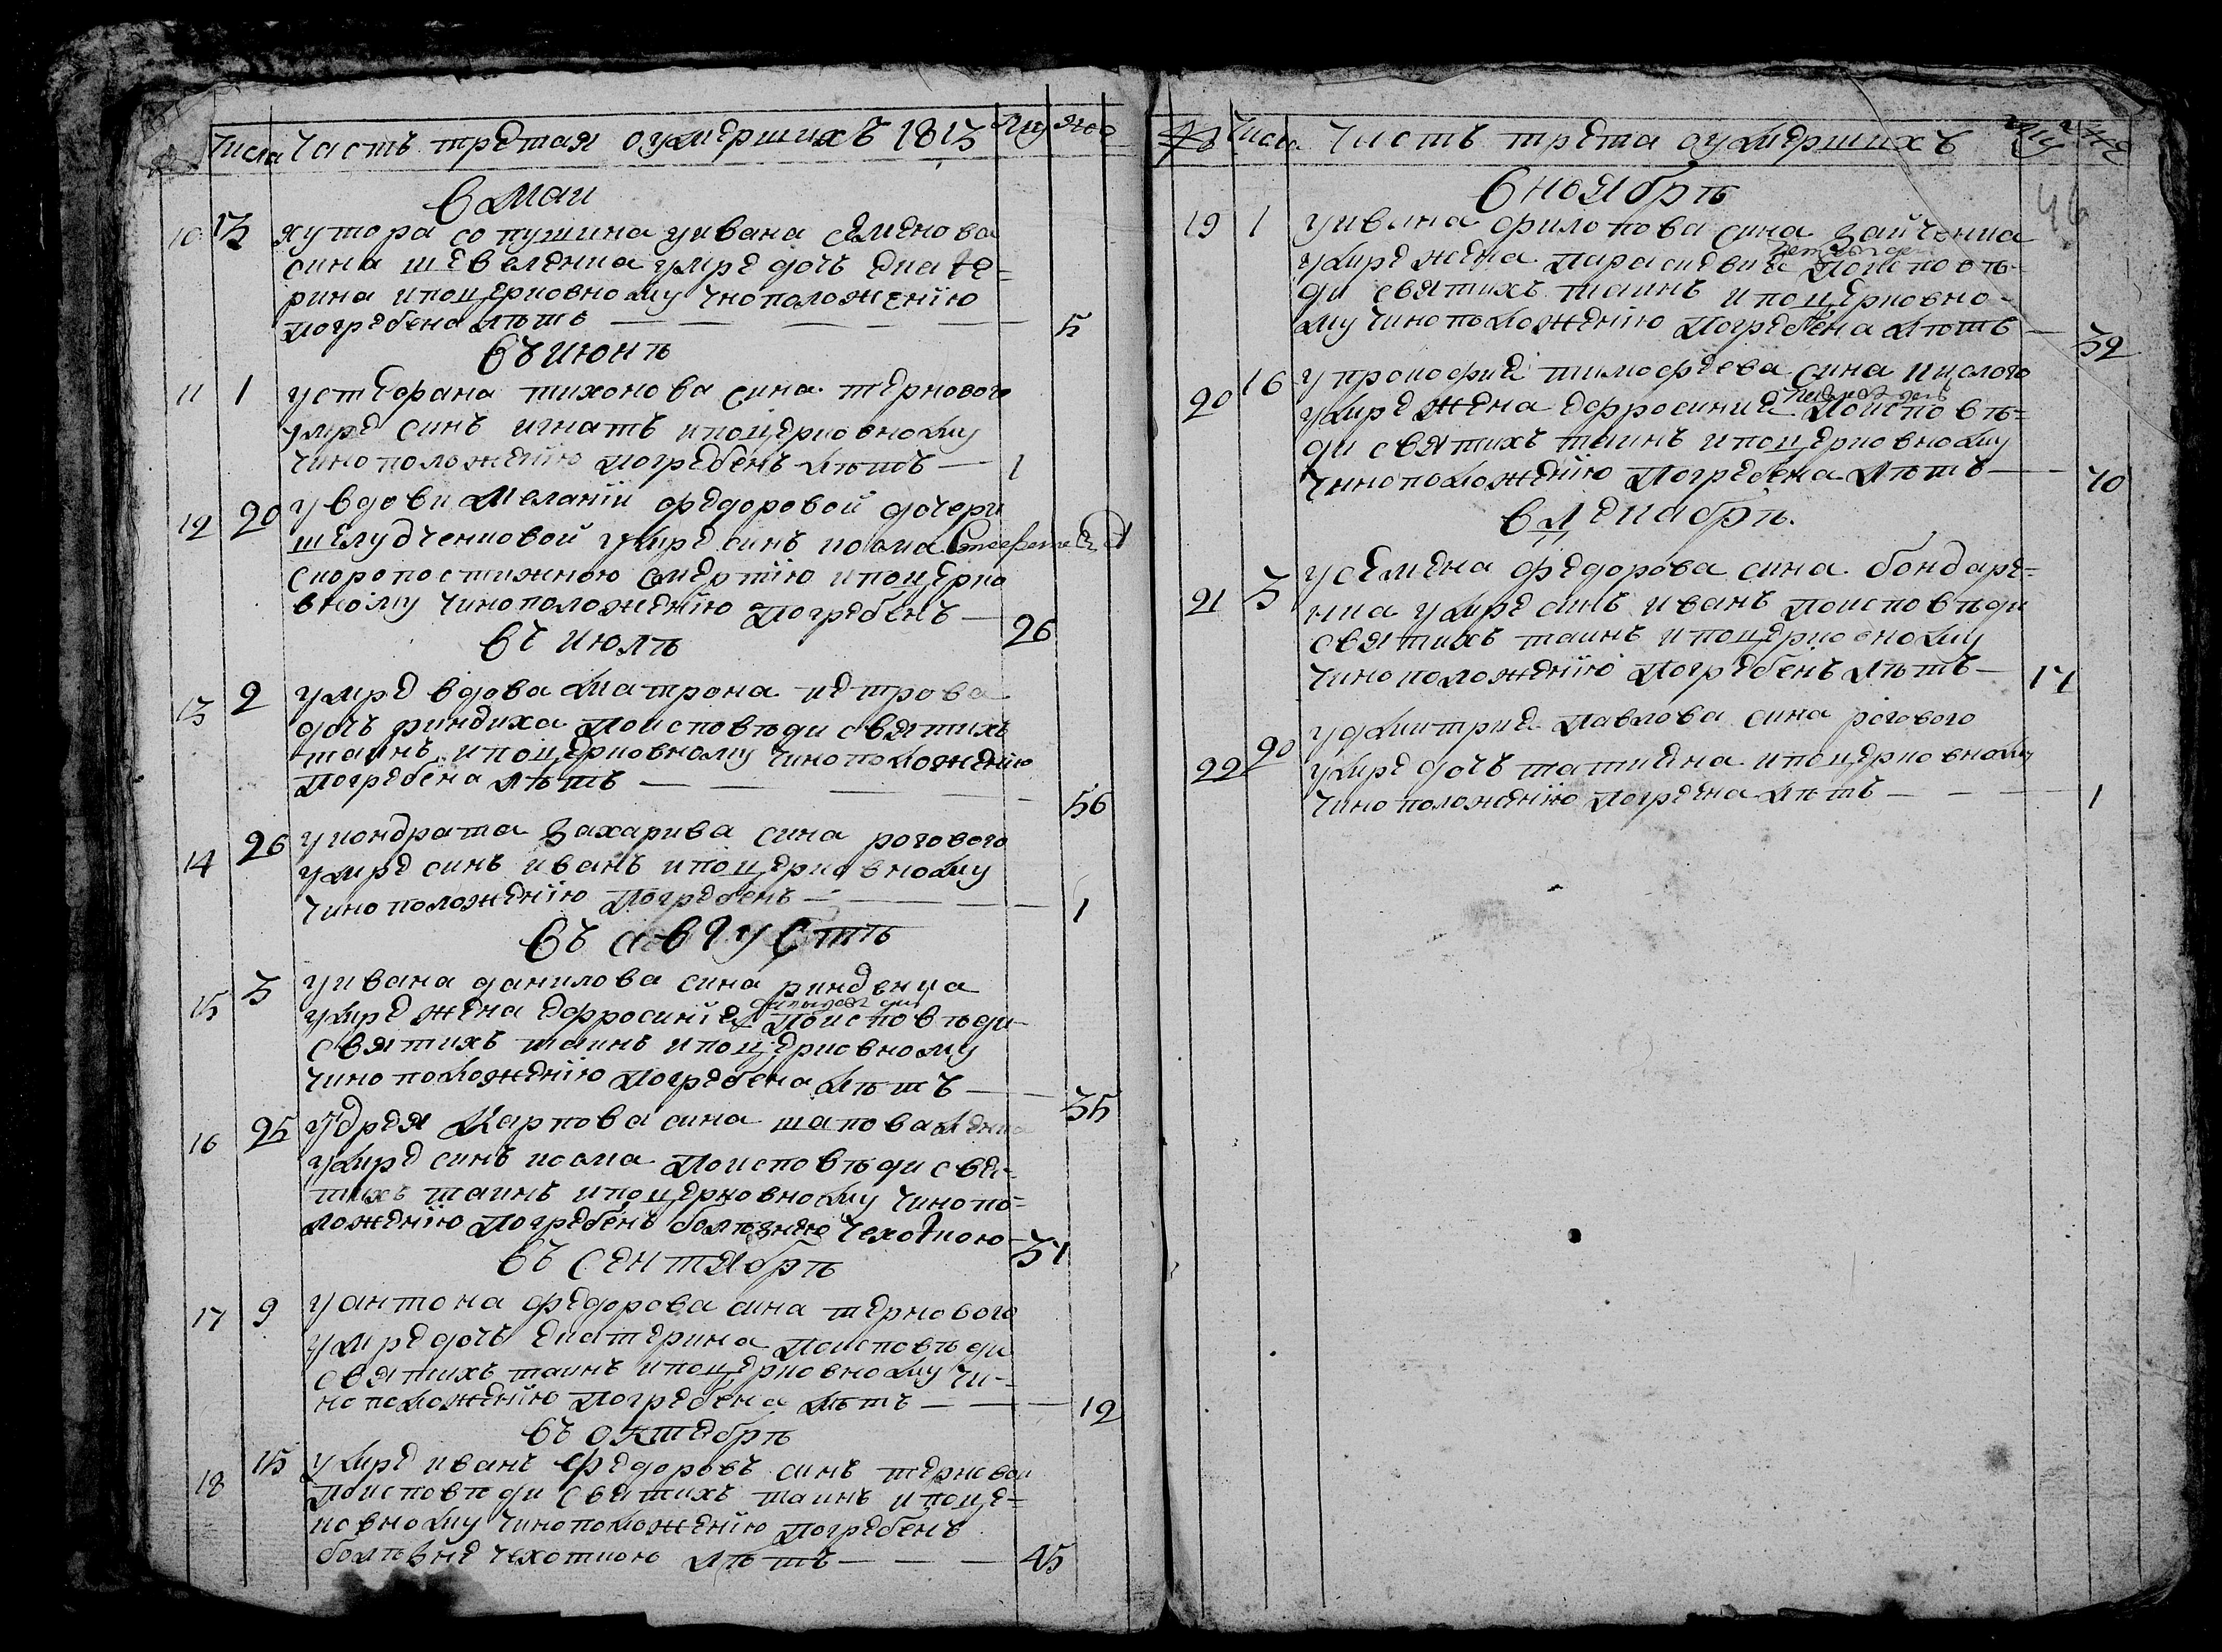 Числа Часть третая оумершихъ 1813 Му Же
В маи
10 13 хутора сопушина уивана семенова
сина шевеленка умре дочь екате=
рина и поцерковному чиноположенїю
погребена лѣтъ — 5
Въ июнѣ
11 1 устефана тихонова сина тернового
умре синъ игнатъ и поцерковному
чиноположенїю погребенъ лѣтъ — 1
12 20 увдови меланїи федоровой дочери
шелудченковой умре синъ козма
скоропостижною смертїю и поцерко
вному чиноположенїю погребенъ — 26
Въ июлѣ
13 2 умре вдова матрона петрова
дочъ риндиха поисповѣди святихъ
таинъ и поцерковному чиноположенїю
погребена лѣтъ — 56
14 26 укондрата захарива сина рогового
умре синъ иванъ и поцерковному
чиноположенїю погребенъ — 1
Въ августѣ
15 3 уивана данилова сина ринденка
умре жена ефросинїе поисповѣди
святихъ таинъ и поцерковному
чиноположенїю погребена лѣтъ — 35
16 25 Карпова сина шаповаленка
умре синъ козма поисповѣди свя-
тихъ таинъ и поцерковному чинопо=
ложенїю погребенъ болѣзнею чехоткою — 37
Въ сентябрѣ
17 9 уантона федорова сина тернового
умре дочъ екатерина поисповѣди
святихъ таинъ и поцерковному чи-
ноположенїю погребена лѣтъ — 12
Въ октебрѣ
18 15 умре иванъ федоровъ синъ терновои
поисповѣди святихъ таинъ и поце=
ковному чиноположенїю погребенъ
болѣзне чехоткою лѣтъ — 45
№ Числа Чисть трета оумершихъ Му Же
46
В ноябрѣ
19 1 уивана филопова сина зайченка
умре жена параскевие поисповѣ-
ди святихъ таинъ и поцерковно-
му чиноположенїю погребена лѣтъ — 32
20 16 упрокофие тимофеева сина кислого
умре жена ефросиние поисповѣ=
ди святихъ таинъ и поцерковному
чиноположенїю погребена лѣтъ — 70
В декабрѣ
21 3 усемена федорова сина бондаре=
нка умре синъ иванъ поисповѣди
святихъ таинъ и поцерковному
чиноположенїю погребенъ лѣтъ — 17
22 20 удмитрие павлова сина рогового
умре дочъ татиана и поцерковному
чиноположенїю погребена лѣтъ — 1